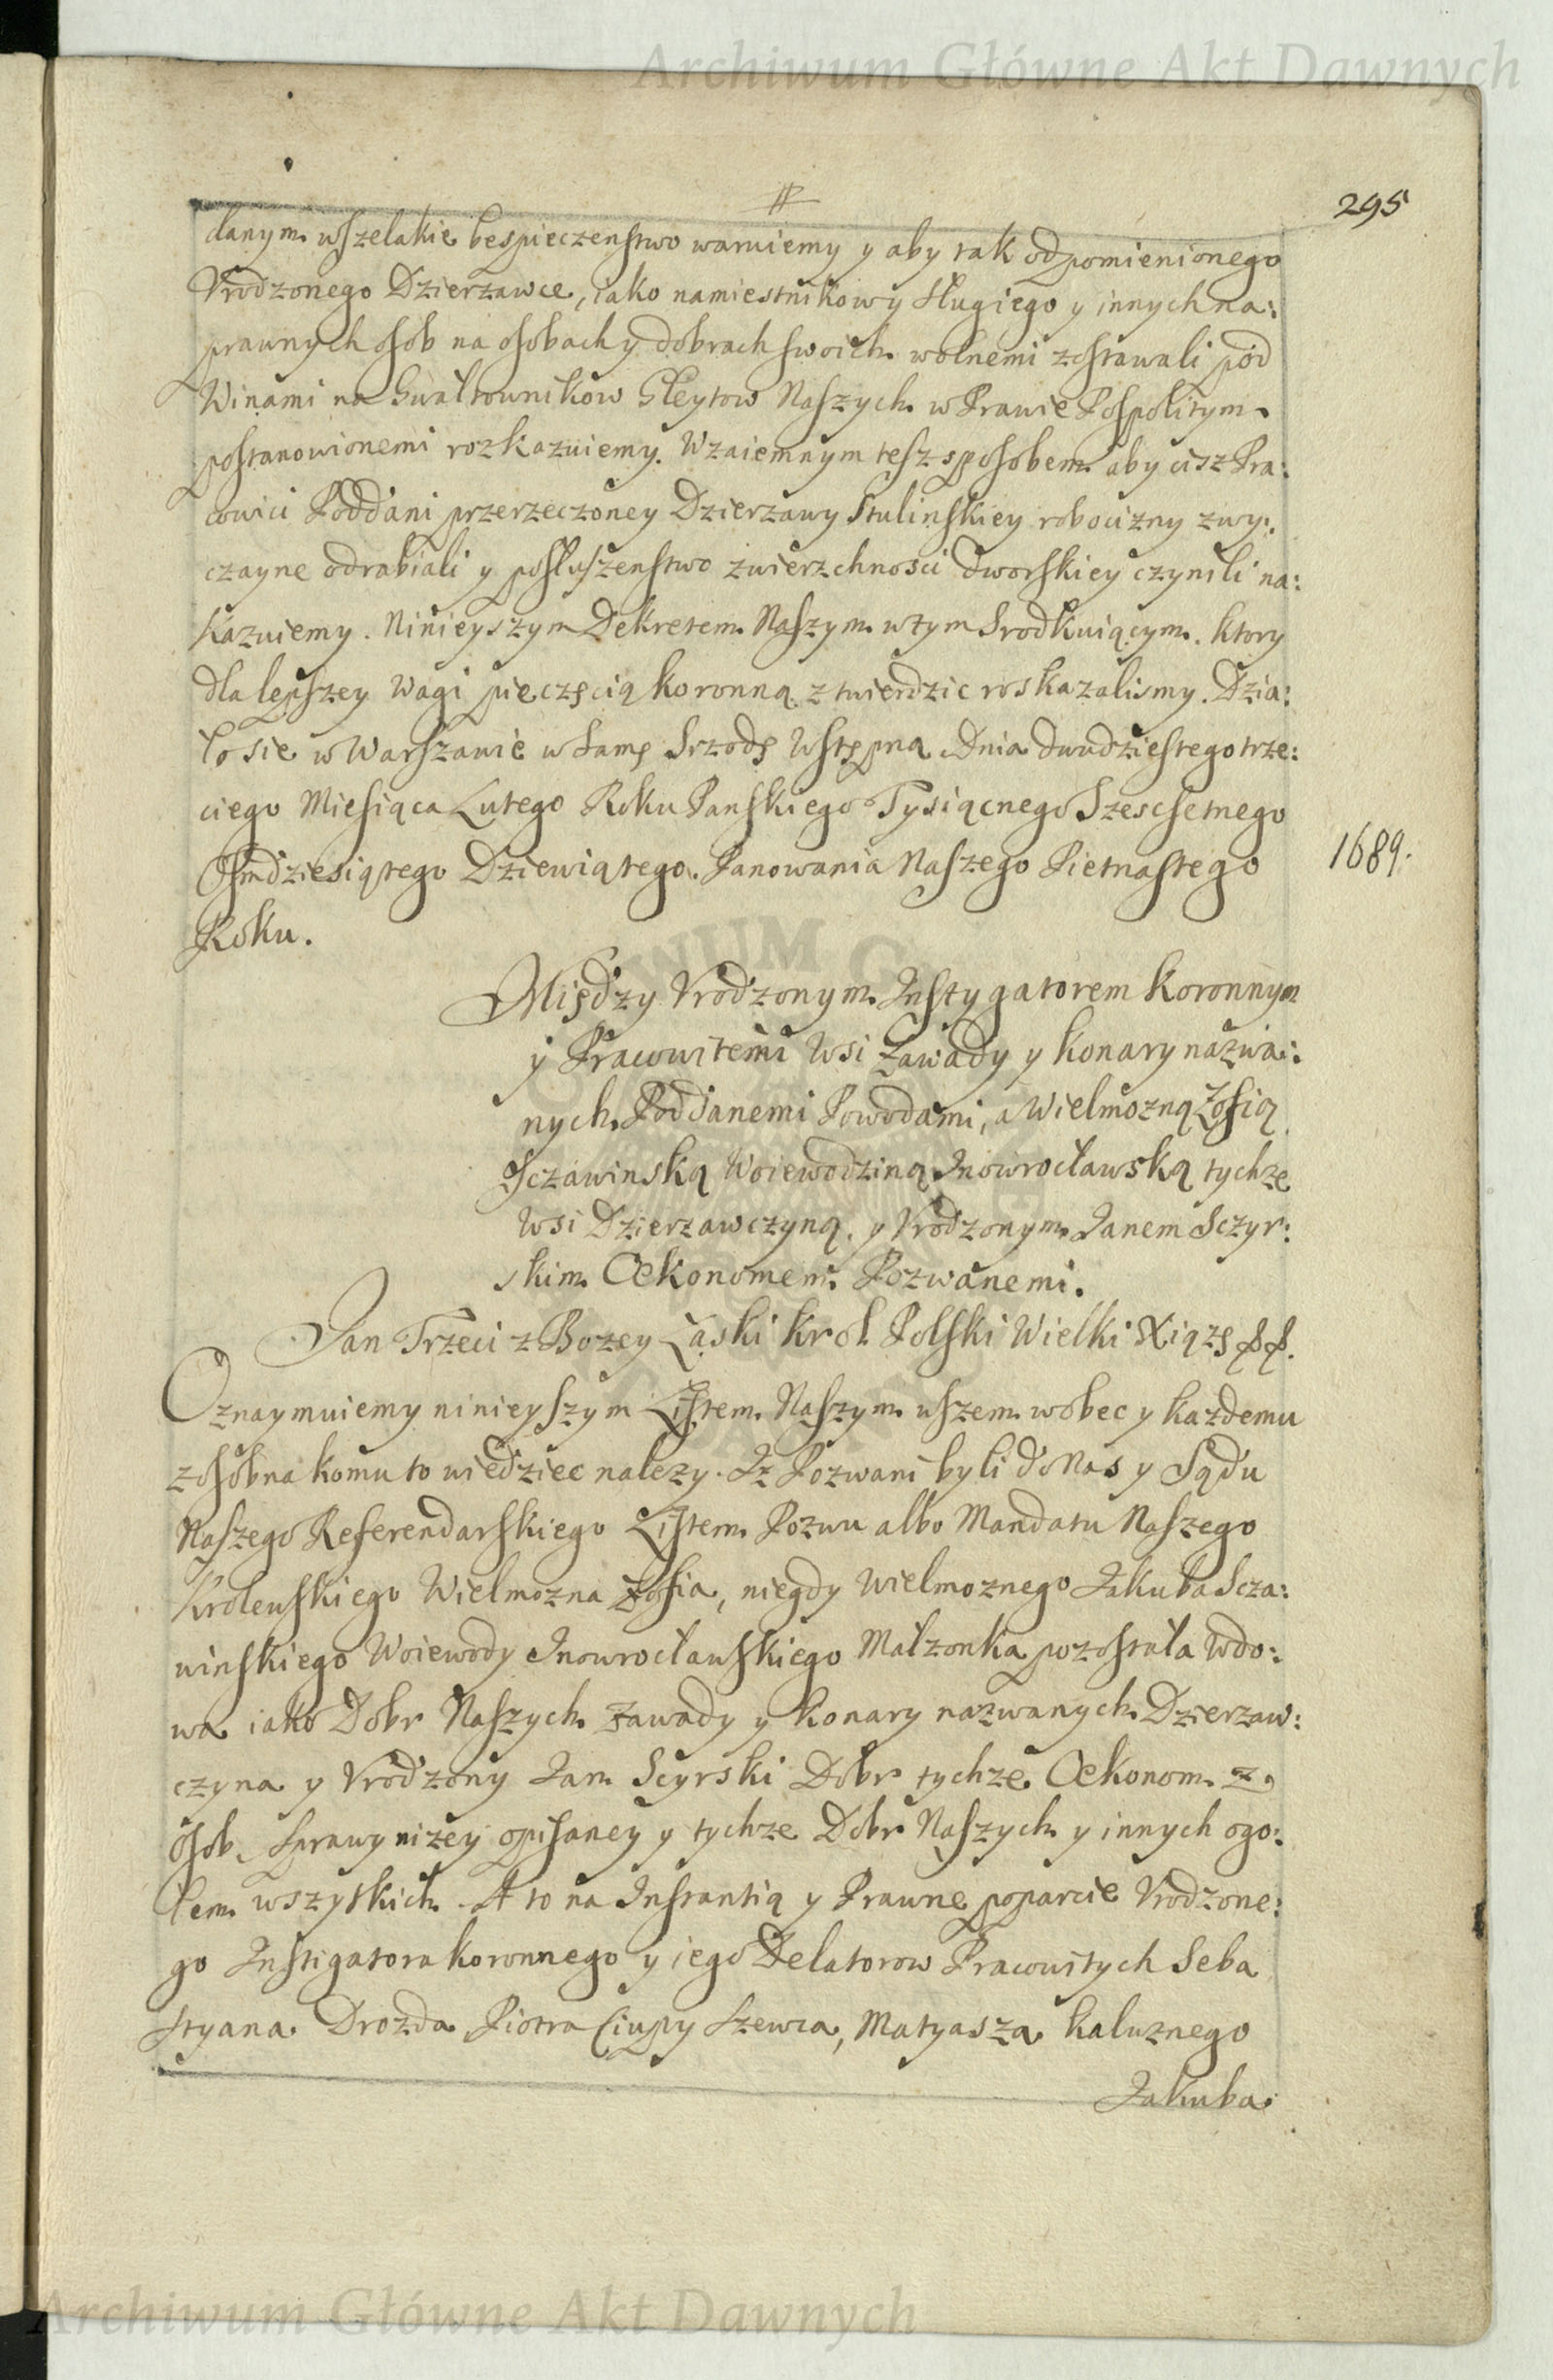 Archiwum Główne Akt Dawnych
295
danym wszelakie bespieczenstwo waruiemy y aby tak od pomienionego
Vrodzonego Dzierzawce, iako namiestnikowy sługiego y innych na:
prawnych osob na osobach y dobrach swoich wolnemi zostawali pod
Winami na Gwałtownikow Gleytow Naszych w Prawie Pospolitym
postanowionemi rozkazuiemy. Wzaiemnym tesz sposobem aby cisz Pra:
cowici Poddani przerzeczoney Dzierzawy Stulinskiey robocizny zwy:
czayne odrabiali y posłuszenstwo zwierzchnosci dworskiey czynili na:
kazuiemy. Ninieyszym Dekretem Naszym w tym Srodkuiącym. ktory
dla lepszey Wagi pieczęcią koronną ztwierdzic roskazalismy. Dzia:
ło sie w Warszawie w samę Srzodę Wstępną Dnia dwudziestego trze:
ciego Miesiąca Lutego Roku Panskiego Tysiącnego Szescsetnego
Osmdziesiątego Dziewiątego. Panowania Naszego Pietnastego
1689.
Roku.
Między Vrodzonym Instygatorem koronnym
y Pracowitemi Wsi Zawady y Konary nazwa:
nych Poddanemi Powodami, a Wielmozną Zofią
Sczawinską Woiewodziną Inowrocławską tychze
Wsi Dzierzawczyną, y Vrodzonym Janem Sczyr:
skim Oekonomem Pozwanemi.
Jan Trzeci z Bozey Łaski Krol Polski Wielki Xiązę pp.
Oznaymuiemy ninieyszym Listem Naszym wszem wobec y kazdemu
zosobna komu to wiedziec nalezy. Iz Pozwani byli do Nas y Sądu
Naszego Referendarskiego Listem Pozwu albo Mandatu Naszego
Krolewskiego Wielmozna Zofia, niegdy Wielmoznego Jakuba Scza:
winskiego Woiewody Inowrocławskiego Małzonka pozostała Wdo:
wa iako Dobr Naszych Zawady y Konary nazwanych Dzierzaw:
czyna y Vrodzony Jan Scyrski Dobr tychze Oekonom z
osob, Sprawy nizey opisaney y tychze Dobr Naszych y innych ogo:
łem wszytkich. A to na Instantią y Prawne poparcie Vrodzone:
go Instigatora koronnego y iego Delatorow Pracowitych Seba
styana Drozda Piotra Ciupy Szewca, Matyasza Kaluznego
Jakuba
Archiwum Główne Akt Dawnych